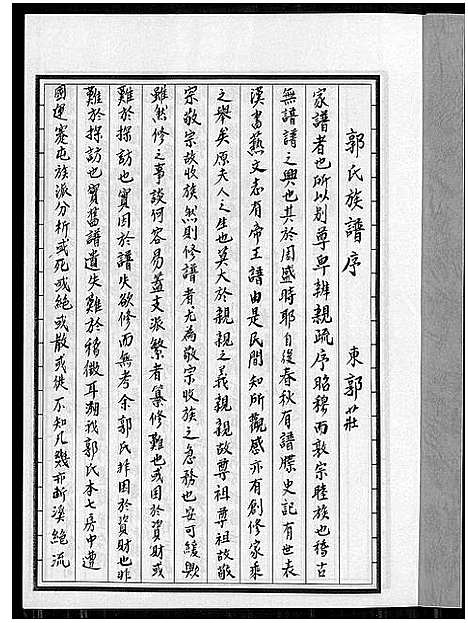 郭氏族譜序
東郭莊
家譜者也所以别尊卑辨親疏序昭穆而敦宗睦族也稽古
無譜譜之興也其於周盛時耶自後春秋有譜牒史記有世表
漢書藝文志有帝王譜由是民間知所觀感亦有創修家乘
之舉矣原夫人之生也莫大於親親之義親親故尊祖尊祖故敬
宗敬宗故收族然則修譜者尤為敬宗收族之急務也安可緩歟
雖然修之事談何容易蓋支派繁者纂修難也或困於資財或
難於採訪也實因於譜失欲修而無考余郭氏非困於資財也非
難於採訪也實舊譜遺失難於稽徵耳溯我郭氏本七房中遭
國運蹇屯族派分析或死或絕或散或徙不知凡幾亦斷溪絕流